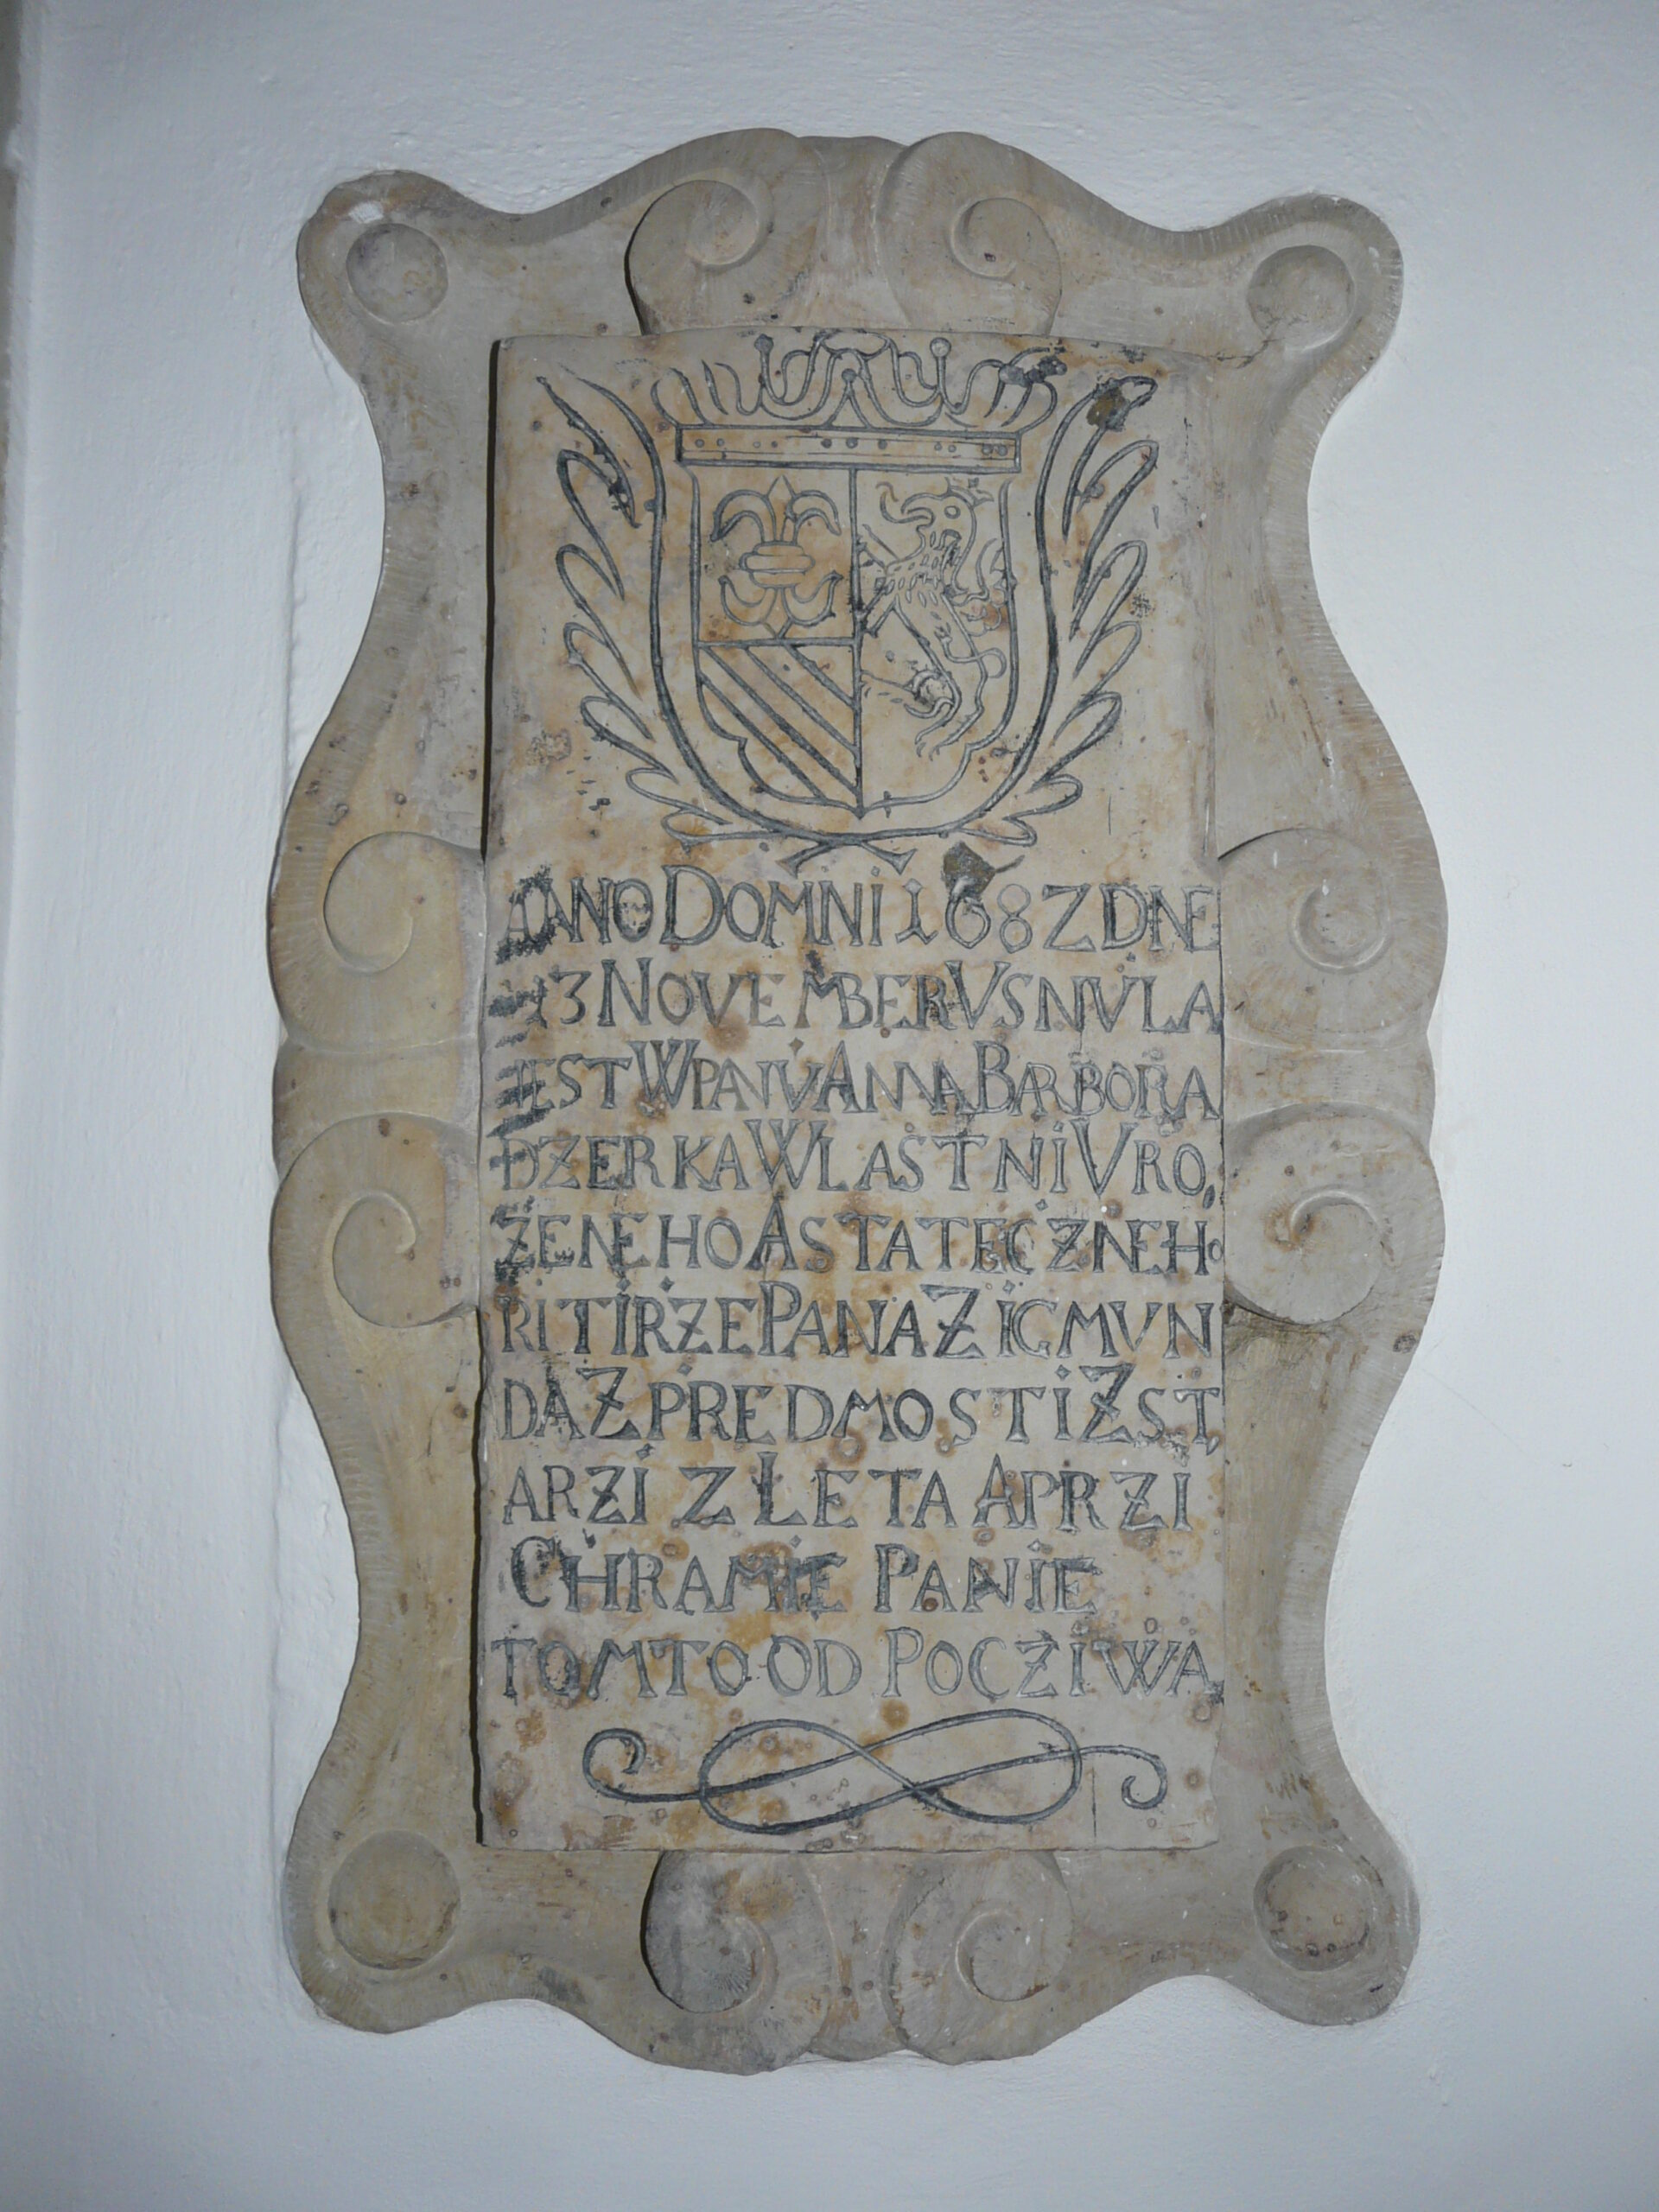 ANNO DOMNI 1682 DNE
13 NOVEMBER VSNVLA
IEST W PANV ANNA BARBORA
DZERKA WLASTNI VRO,
ZENEHO A STATECZNEHO
RITIRZE PANA ZIGMVN
DA Z PREDMOSTI Z ST,
ARZI Z LETA A PRZI
CHRAMIE PANIE
TOMTO ODPOCZIWA